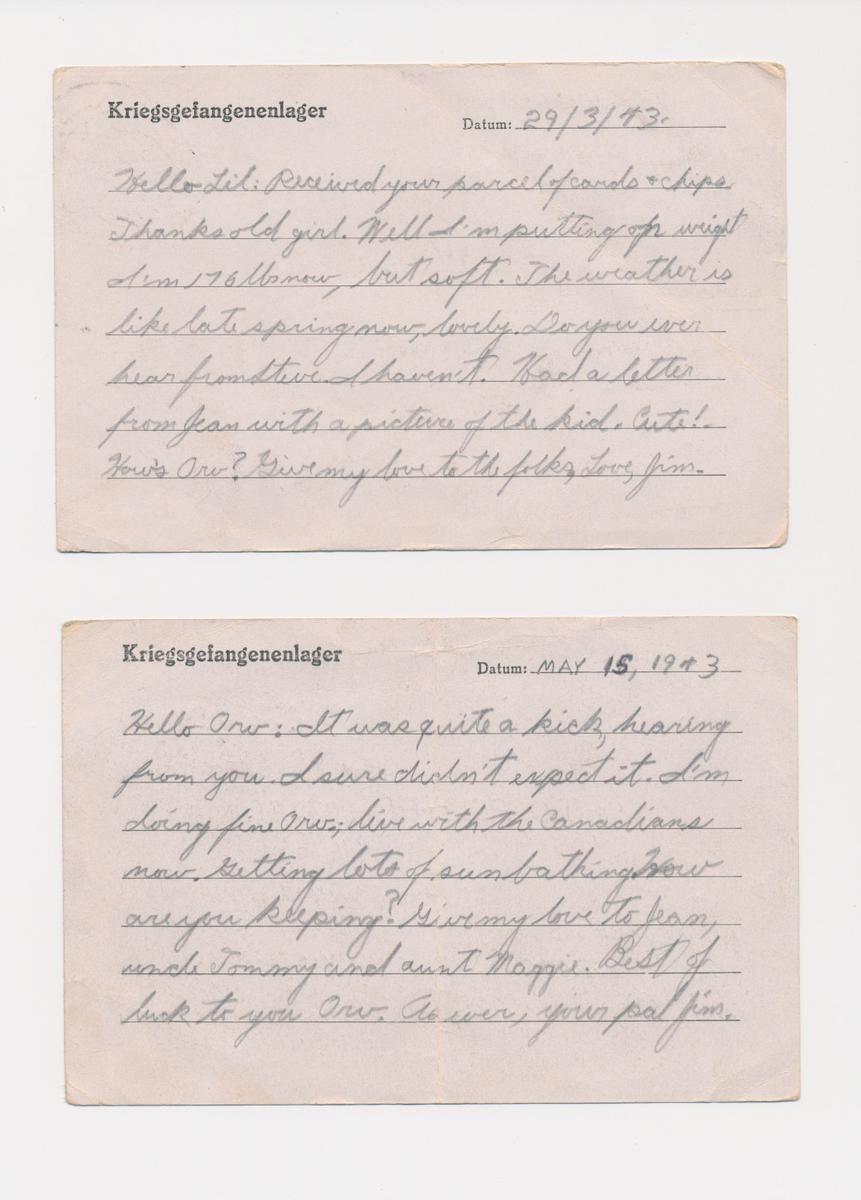 Kriegsgefangenenlager
Datum: 29/3/43.
Hello Lil: Received your parcel of cards & chips
Thanks old girl. Well I'm putting on weight
I'm 176 lbs now, but soft. The weather is
like late spring now, lovely. Do you ever
hear from Steve. I haven't. Had a letter
from Jean with a picture of the kid. Cute!.
How's Orv? Give my love to the folks, Love, Jim.
Kriegsgefangenenlager
Datum: MAY 15, 1943
Hello Orv: It was quite a kick, hearing
from you. I sure didn't expect it. I'm
doing fine Orv.; live with the Canadians
now. Getting lots of sun bathing How
are you keeping? Give my love to Jean,
uncle Tommy and aunt Maggie. Best of
luck to you Orv. As ever, your pal Jim.